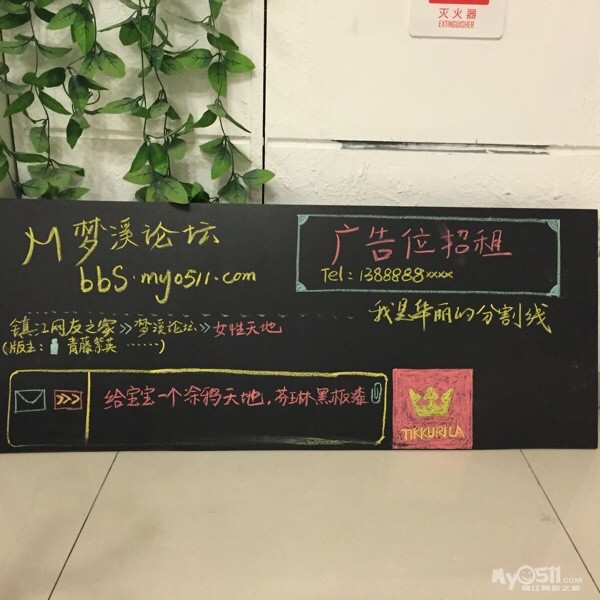 灭火器
EXTINGUISHER
M 梦溪论坛
bbs.my0511.com
广告位招租
Tel: 1388888xxxx
我是华丽的分割线
镇江网友之家>>梦溪论坛>>女性天地
(版主: 青藤紫英 ……)
>>> 给宝宝一个涂鸦天地,芬琳黑板漆
TIKKURILA
My0511.COM
镇江网友之家